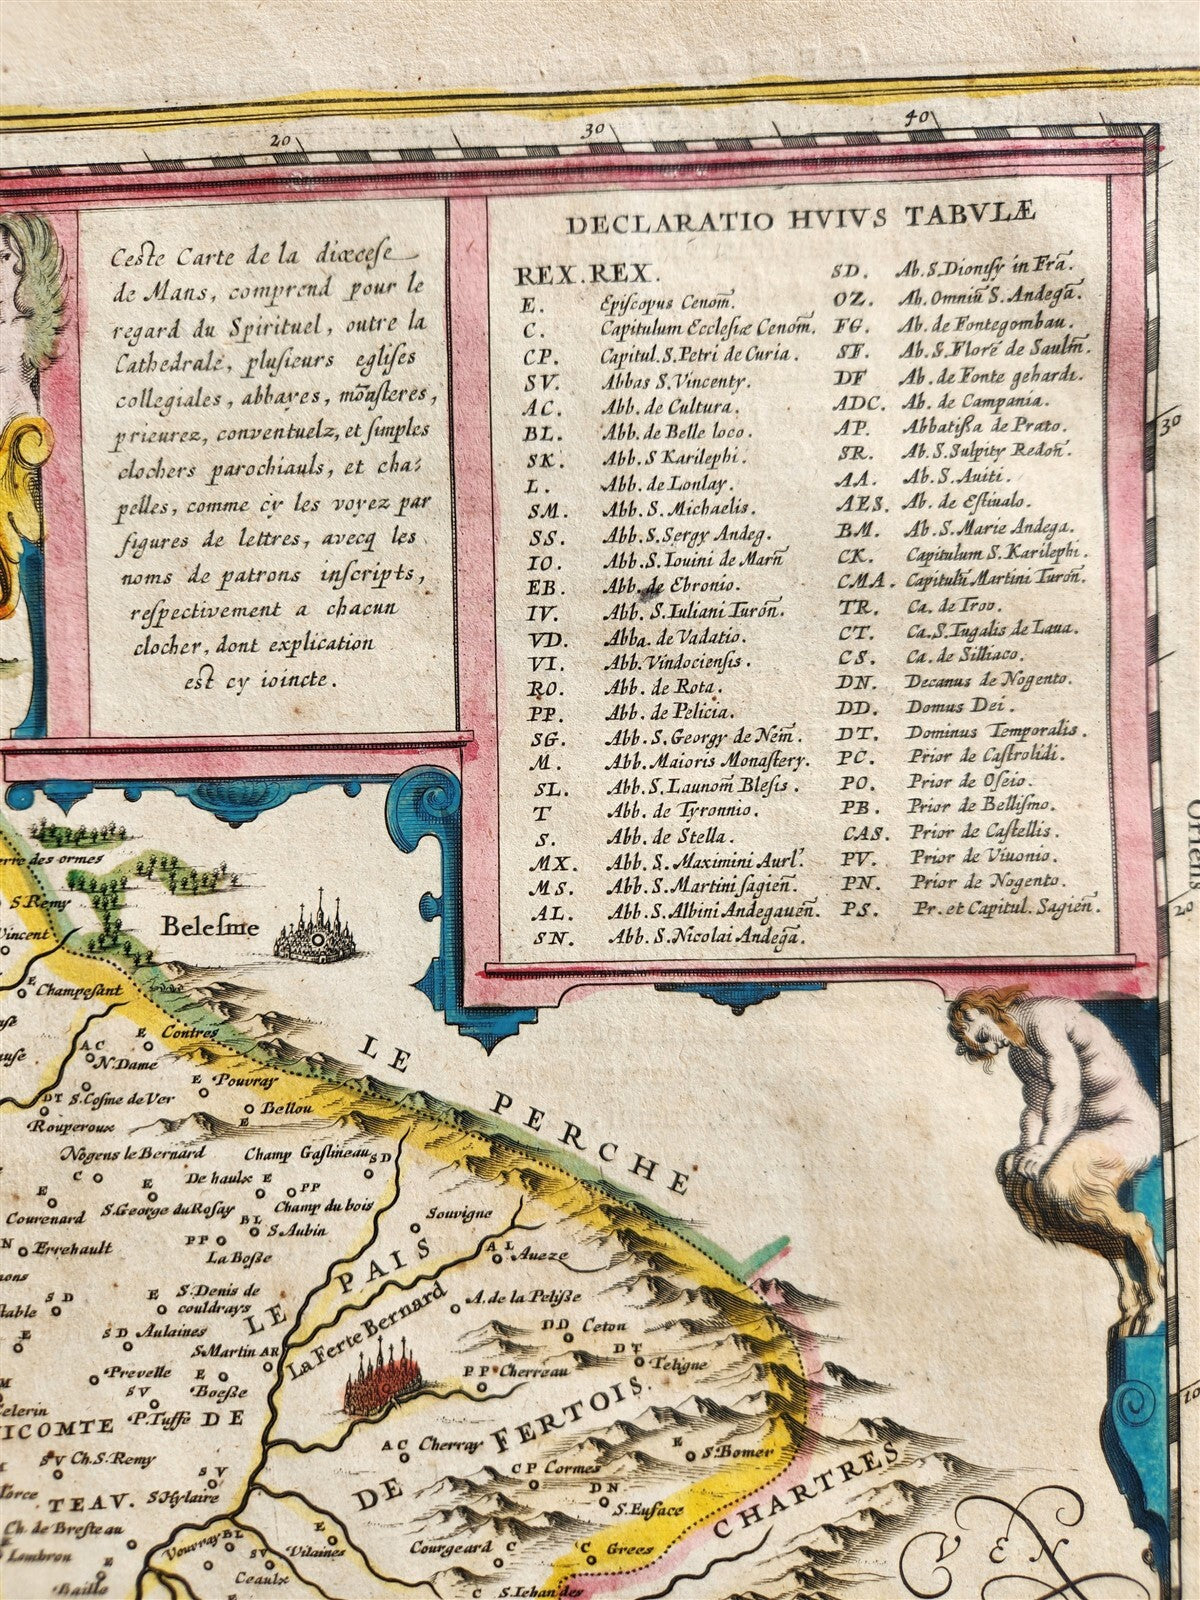 20
30
40
Ceste Carte de la diœcese
de Mans, comprend pour le
regard du Spirituel, outre la
Cathedrale, plusieurs eglises
collegiales, abbayes, mōasteres,
prieurez, conventuelz, et simples
clochers parochiauls, et cha:
pelles, comme cÿ les voyez par
figures de lettres, avecq les
noms de patrons inscripts,
respectivement a chacun
clocher, dont explication
est cy ioincte.
DECLARATIO HVIVS TABVLÆ
REX. REX.
E. Episcopus Cenom̄.
C. Capitulum Ecclesiæ Cenom̄.
CP. Capitul. S. Petri de Curia.
SV. Abbas S. Vincenty.
AC. Abb. de Cultura.
BL. Abb. de Belle loco.
SK. Abb. S Karilephi.
L. Abb. de Lonlay.
SM. Abb. S. Michaelis.
SS. Abb. S. Sergy Andeg.
IO. Abb. S. Iouini de Marn̄
EB. Abb. de Ebronio.
IV. Abb. S. Iuliani Turōn.
VD. Abba. de Vadatio.
VI. Abb. Vindociensis.
RO. Abb. de Rota.
PP. Abb. de Pelicia.
SG. Abb. S. Georgy de Nem̄.
M. Abb. Maioris Monastery.
SL. Abb. S. Launom̄ Blesis.
T Abb. de Tyronnio.
S. Abb. de Stella.
MX. Abb. S. Maximini Aurl'.
MS. Abb. S. Martini sagien̄.
AL. Abb. S. Albini Andegauen̄.
SN. Abb. S. Nicolai Andegā.
SD. Ab. S. Dionisy in Frā.
OZ. Ab. Omniū S. Andegā.
FG. Ab. de Fontegombau.
SF. Ab. S. Florē de Saulm̄.
DF Ab. de Fonte gehardi.
ADC. Ab. de Campania.
AP. Abbatißa de Prato.
SR. Ab. S. Sulpity Redon̄.
AA. Ab. S. Auiti.
AES. Ab. de Estiualo.
BM. Ab. S. Marie Andega.
CK. Capitulum S. Karilephi.
CMA. Capitulū Martini Turon̄.
TR. Ca. de Troo.
CT. Ca. S. Tugalis de Laua.
CS. Ca. de Silliaco.
DN. Decanus de Nogento.
DD. Domus Dei.
DT. Dominus Temporalis.
PC. Prior de Castrolidi.
PO. Prior de Oseio.
PB. Prior de Bellismo.
CAS. Prior de Castellis.
PV. Prior de Viuonio.
PN. Prior de Nogento.
PS. Pr. et Capitul. Sagien̄.
30
20
10
Oriens
des ormes
S. Remy
Vincent
Belesme
E Champesant
E Contres
AC N. Dame
E Pouvray
DT S. Cosme de Ver
E Bellou
Rouperoux
LE PERCHE
Nogens le Bernard
Champ Gaslineau SD
C
De haulx E
PP
E Courenard
E S. George du Rosay
Champ du bois
BL S. Aubin
Souvigne
N Errehault
PP La Boße
AL Aueze
LE PAIS
SD
E S. Denis de
couldrays
A. de la Peliße
E
SD Aulaines
S. Martin AR
La Ferte Bernard
DD Ceton
DT Teligne
Prevelle
E Boeße
PP Cherreau
SV P. Tuffe
VICOMTE DE
FERTOIS.
AC Cherray
E S. Bomer
SV Ch. S. Remy
CP Cormes
SV S. Hylaire
TEAV.
DE
DN S. Euface
CHARTRES
Ch. de Bresteau
Vouvray BL
E Vilaines
SV Ceaulx
Courgeard C
C Grees
Lombron
E
Baille
C S. Iehan des
VEN